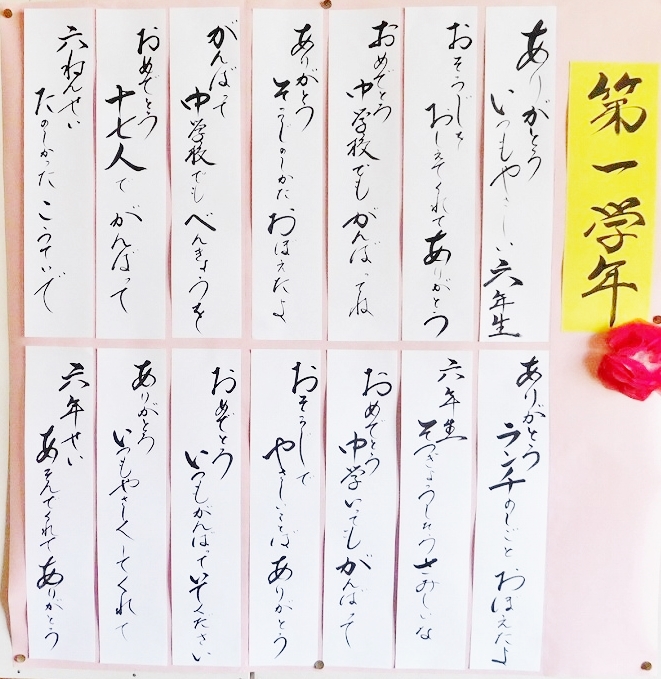 第一学年
ありがとう いつもやさしい 六年生
おそうじを おしえてくれて ありがとう
おめでとう 中学校でも がんばってね
ありがとう そうじのしかた おぼえたよ
がんばって 中学校でも べんきょうを
おめでとう 十七人で がんばって
六ねんせい たのしかった こうていで
ありがとう ランチのしごと おぼえたよ
六年生 そつぎょうしちゃう さみしいな
おめでとう 中学いっても がんばって
おそうじで やさしいことば ありがとう
おめでとう いつもがんばって いてください
ありがとう いつもやさしくしてくれて
六年せい あそんでくれて ありがとう